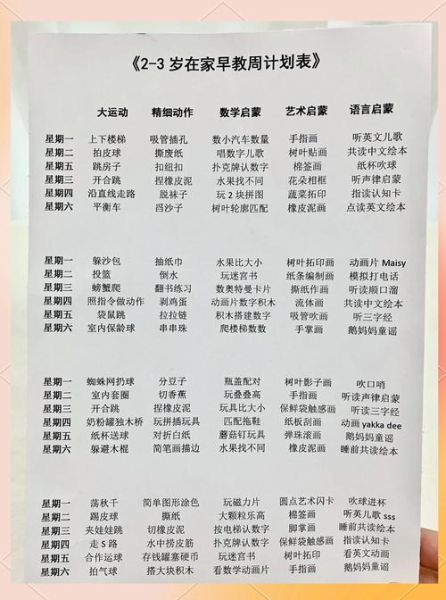 《2-3 岁在家早教周计划表》
大运动 精细动作 数学启蒙 艺术启蒙 语言启蒙
星期一 上下楼梯 吸管插孔 数小汽车数量 手指画 听英文儿歌
星期二 拍皮球 撕废纸 唱数字儿歌 树叶贴画 共读中文绘本
星期五 跳房子 扣纽扣 扑克牌认数字 棉签画 纸杯吹球
星期三 开合跳 捏橡皮泥 水果找不同 花朵相框 听声律启蒙
星期四 沿直线走路 脱袜子 玩2块拼图 蔬菜拓印 指读认知卡
星期六 平衡车 舀沙子 树叶轮廓匹配 橡皮泥画 点读英文绘本
星期一 躲沙包 抽纸巾 水果比大小 树叶拓印画 动画片 Maisy
星期二 投篮 倒水 玩迷宫书 纸条编制画 模拟打电话
星期三 螃蟹爬 翻书练习 数奥特曼卡片 撕纸作画 听读顺口溜
星期四 照指令做动作 剥鸡蛋 动画片数字积木 流体画 共读中文绘本
星期五 袋鼠跳 拉拉链 积木搭建数字 吸管吹画 听读三字经
星期六 室内保龄球 串串珠 爬楼梯数数 手掌画 鹅妈妈童谣
星期一 蜘蛛网扔球 分豆子 瓶盖配对 树叶影子画 吹口哨
星期二 室内套圈 切香蕉 玩叠叠高 手指画 听读声律启蒙
星期三 开合跳 捏橡皮泥 玩具比大小 保鲜袋触感画 听读三字经
星期四 奶粉罐独木桥 玩拼插玩具 匹配拖鞋 纸板刮画 动画 yakka dee
星期五 纸杯送球 对折白纸 蘑菇钉玩具 弹珠滚画 鹅妈妈童谣
星期六 躲避木棍 简笔画描边 水果找不同 橡皮泥画 睡前共读绘本
星期一 荡秋千 简单图形涂色 玩磁力片 圆点艺术闪卡 吹球进杯
星期二 踢皮球 撕纸 大颗粒乐高 棉签画 听英儿歌 sss
星期三 夹娃娃跳 切橡皮泥 按电梯认数字 脚掌画 睡前共读绘本
星期四 走 S 路 水中捞皮筋 扑克牌认数字 保鲜袋触感画 指读认知卡
星期五 合作运球 存钱罐塞硬币 玩迷宫书 树叶拓印 看英文动画
星期六 拍气球 搭大块积木 看数学动画片 手指画 鹅妈妈童谣